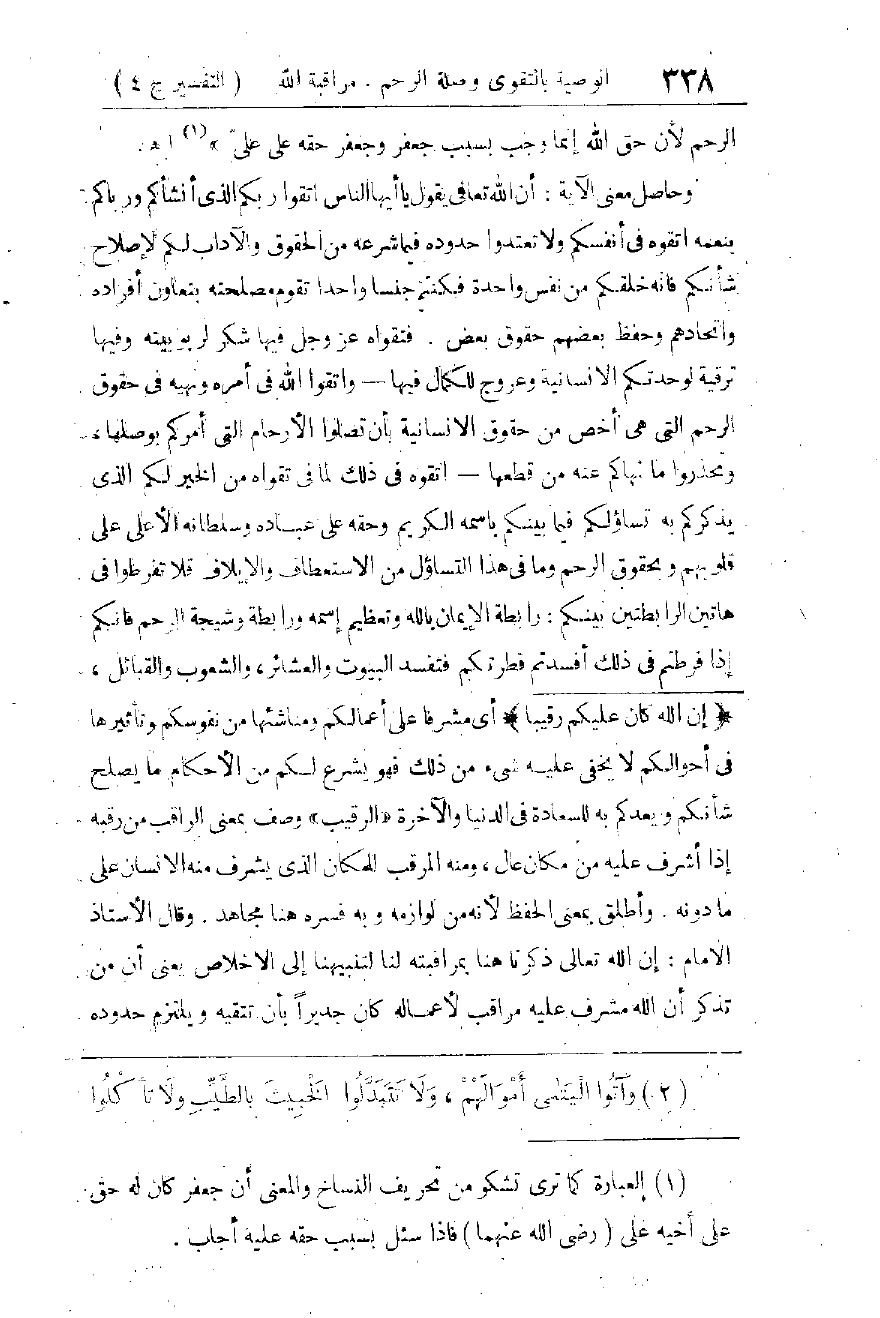 ٣٣٨ الوصية بالتقوى وصلة الرحم . مراقبة الله ( التفسير ج ٤ )
الرحم لأن حق الله إنما وجب بسبب جعفر وجعفر حقه على علىّ » (١) ا هـ.
وحاصل معنى الآية : أن الله تعالى يقول يا أيها الناس اتقوا ربكم الذى أنشأكم ورباكم
بنعمه اتقوه فى أنفسكم ولا تعتدوا حدوده فيما شرعه من الحقوق والآداب لكم لإصلاح
شأنكم فانه خلقكم من نفس واحدة فكنتم جنسا واحدا تقوم مصلحته بتعاون أفراده
واتحادهم وحفظ بعضهم حقوق بعض . فتقواه عز وجل فيها شكر لربوبيته وفيها
ترقية لوحدتكم الانسانية وعروج للكمال فيها — واتقوا الله فى أمره ونهيه فى حقوق
الرحم التى هى أخص من حقوق الانسانية بأن تصلوا الأرحام التى أمركم بوصلها ،
وتحذروا ما نهاكم عنه من قطعها — اتقوه فى ذلك لما فى تقواه من الخير لكم الذى
يذكركم به تساؤلكم فيما بينكم باسمه الكريم وحقه على عباده وسلطانه الأعلى على
قلوبهم وبحقوق الرحم وما فى هذا التساؤل من الاستعطاف والإيلاف فلا تفرطوا فى
هاتين الرابطتين بينكم : رابطة الإيمان بالله وتعظيم إسمه ورابطة وشيجة الرحم فانكم
إذا فرطتم فى ذلك أفسدتم فطرتكم فتفسد البيوت والعشائر ، والشعوب والقبائل ،
﴿ إن الله كان عليكم رقيبا ﴾ أى مشرفا على أعمالكم ومناشئها من نفوسكم وتأثيرها
فى أحوالكم لا يخفى عليه شىء من ذلك فهو يشرع لكم من الأحكام ما يصلح
شأنكم ويعدكم به للسعادة فى الدنيا والآخرة «الرقيب» وصف بمعنى الراقب من رقبه
إذا أشرف عليه من مكان عال ، ومنه المرقب للمكان الذى يشرف منه الانسان على
ما دونه . وأطلق بمعنى الحفظ لأنه من لوازمه وبه فسره هنا مجاهد . وقال الأستاذ
الامام : إن الله تعالى ذكرنا هنا بمراقبته لنا لتنبيهنا إلى الاخلاص يعنى أن من
تذكر أن الله مشرف عليه مراقب لأعماله كان جديراً بأن تتقيه ويلتزم حدوده
(٢.) وَآتُوا الْيَتَامَى أَمْوَالَهُمْ ، وَلَا تَتَبَدَّلُوا الْخَبِيثَ بِالطَّيِّبِ وَلَا تَأْكُلُوا
(١) العبارة كما ترى تشكو من تحريف النساخ والمعنى أن جعفر كان له حق
على أخيه على ( رضى الله عنهما ) فاذا سئل بسبب حقه عليه أجاب .